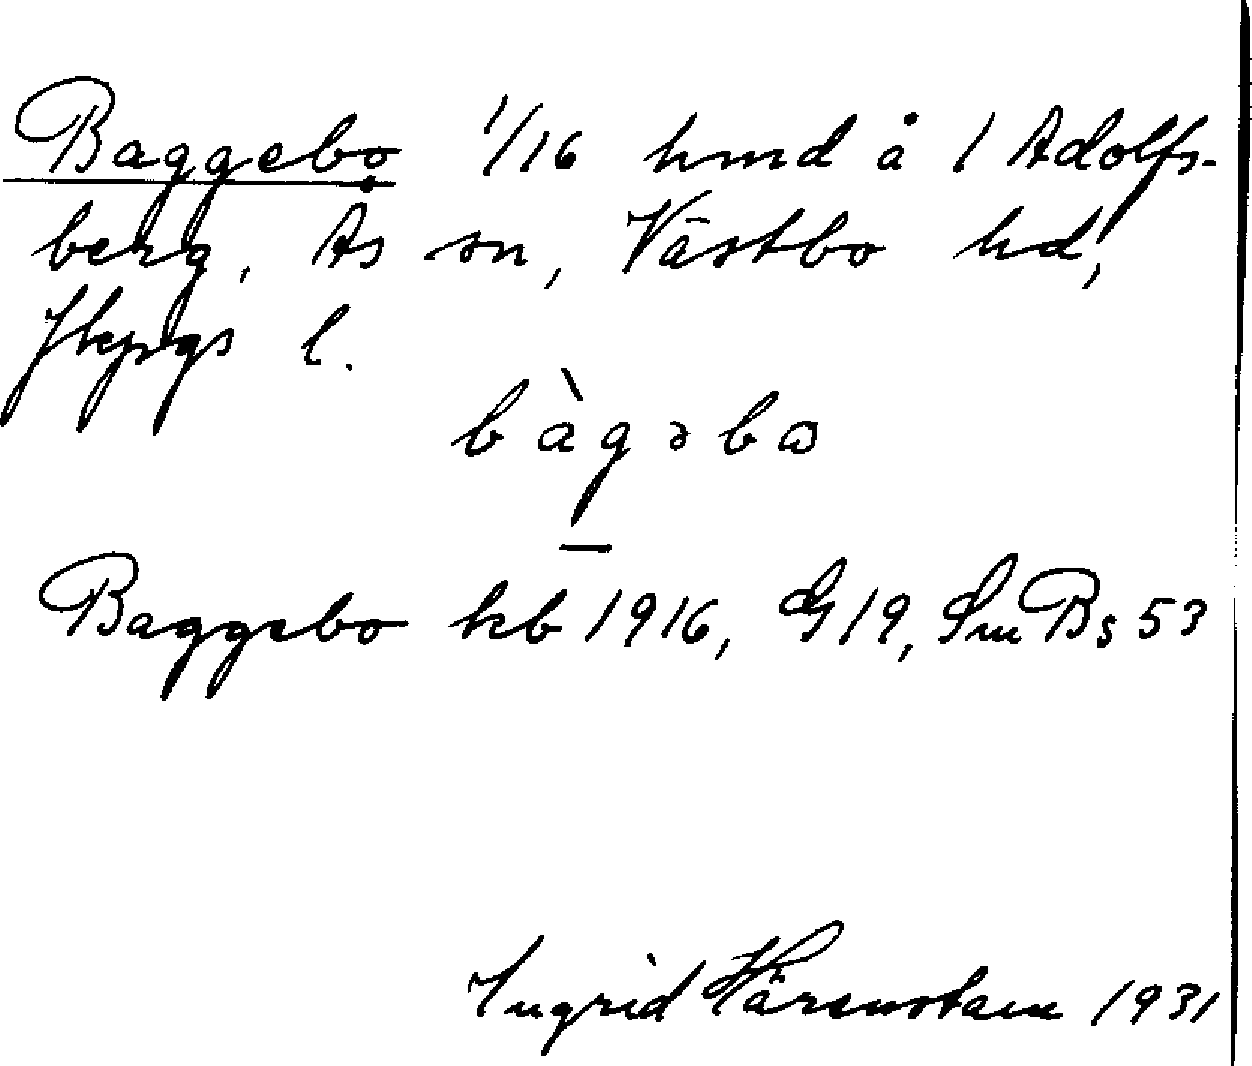 Baggebo 1/16 hmd å 1 Adolfs-
berg, Ås sn, Västbo hd,
Jkpgs l.
bàgəbω
Baggebo kb 1916, G 19, Sm Bs 53
Ingrid Härenstam 1931